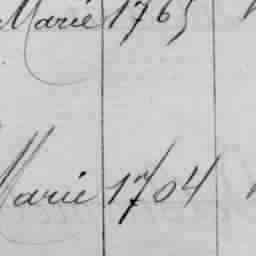 Marie 1765
Marie 1704